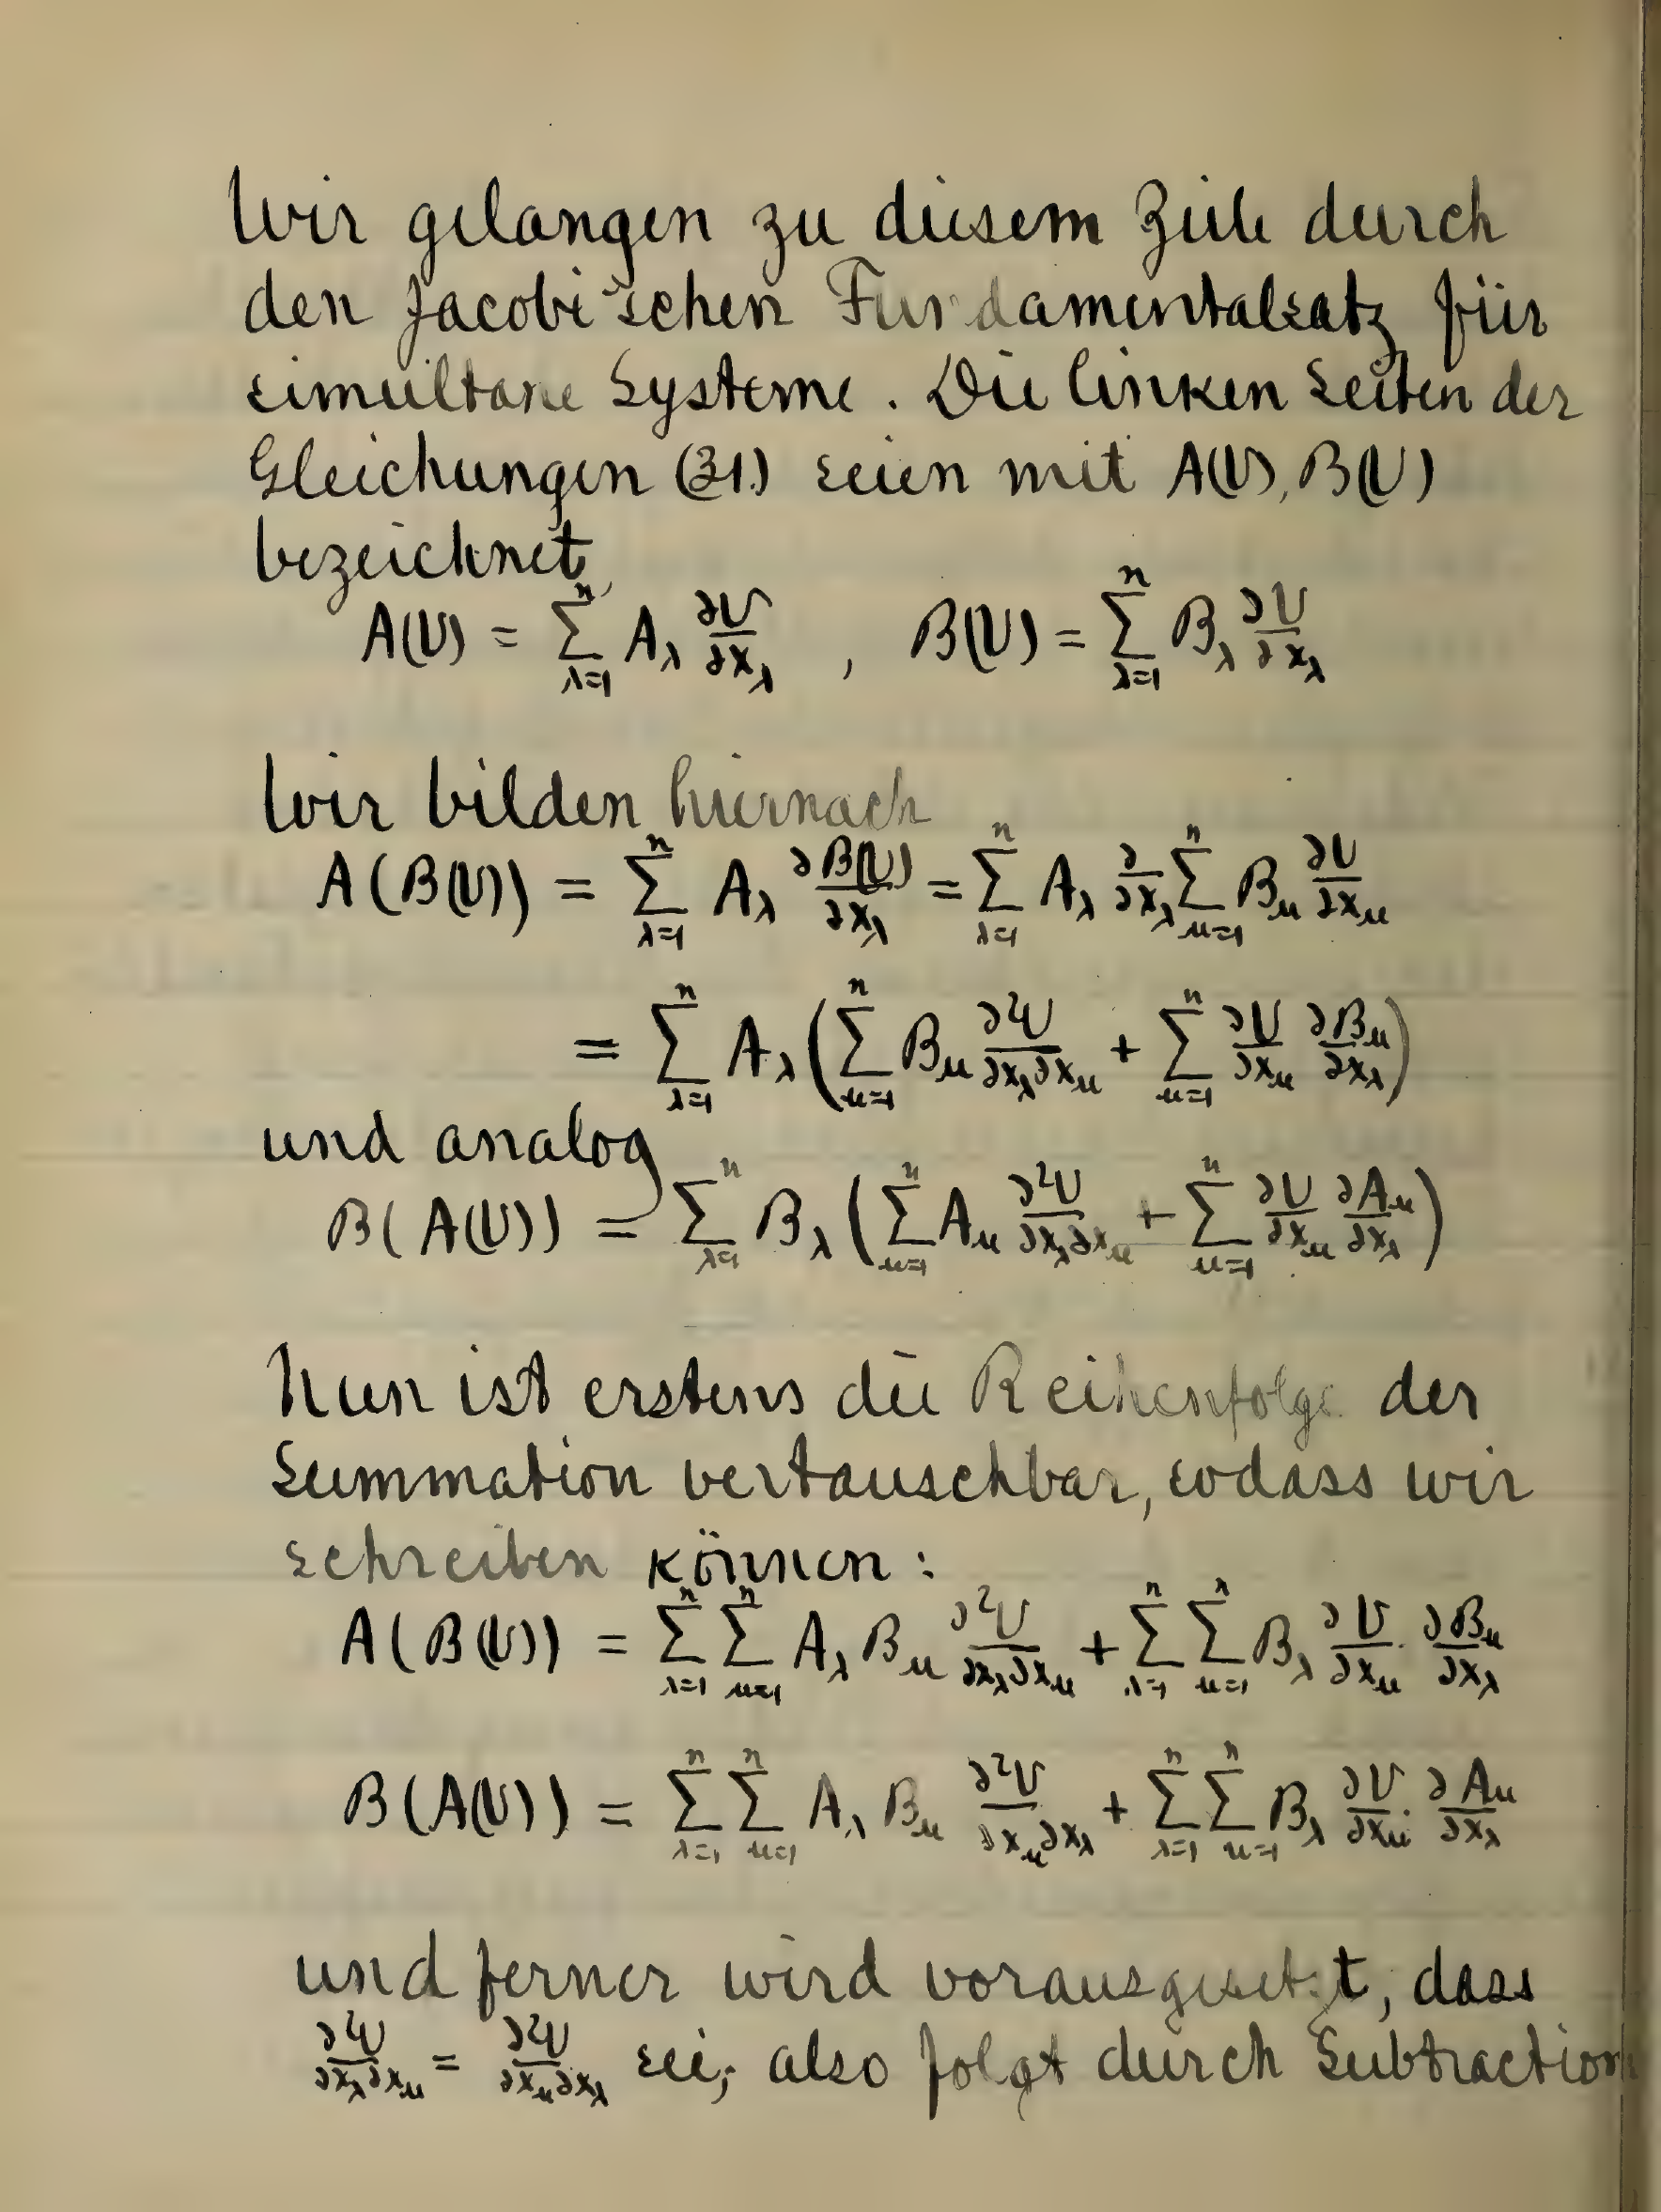 Wir gelangen zu diesem Ziele durch
den Jacobi'schen Fundamentalsatz für
simultane Systeme. Die linken Seiten der
Gleichungen (31.) seien mit A(U), B(U)
bezeichnet,
A(U) = \sum_{λ=1}^{n} A_λ \frac{∂U}{∂x_λ} , B(U) = \sum_{λ=1}^{n} B_λ \frac{∂U}{∂x_λ}
Wir bilden hiernach
A(B(U)) = \sum_{λ=1}^{n} A_λ \frac{∂B(U)}{∂x_λ} = \sum_{λ=1}^{n} A_λ \frac{∂}{∂x_λ} \sum_{μ=1}^{n} B_μ \frac{∂U}{∂x_μ}
= \sum_{λ=1}^{n} A_λ ( \sum_{μ=1}^{n} B_μ \frac{∂^2U}{∂x_λ∂x_μ} + \sum_{μ=1}^{n} \frac{∂U}{∂x_μ} \frac{∂B_μ}{∂x_λ} )
und analog
B(A(U)) = \sum_{λ=1}^{n} B_λ ( \sum_{μ=1}^{n} A_μ \frac{∂^2U}{∂x_λ∂x_μ} + \sum_{μ=1}^{n} \frac{∂U}{∂x_μ} \frac{∂A_μ}{∂x_λ} )
Nun ist erstens die Reihenfolge der
Summation vertauschbar, sodass wir
schreiben können:
A(B(U)) = \sum_{λ=1}^{n} \sum_{μ=1}^{n} A_λ B_μ \frac{∂^2U}{∂x_λ∂x_μ} + \sum_{λ=1}^{n} \sum_{μ=1}^{n} B_λ \frac{∂U}{∂x_μ} · \frac{∂B_μ}{∂x_λ}
B(A(U)) = \sum_{λ=1}^{n} \sum_{μ=1}^{n} A_λ B_μ \frac{∂^2U}{∂x_μ∂x_λ} + \sum_{λ=1}^{n} \sum_{μ=1}^{n} B_λ \frac{∂U}{∂x_μ} · \frac{∂A_μ}{∂x_λ}
und ferner wird vorausgesetzt, dass
\frac{∂^2U}{∂x_λ∂x_μ} = \frac{∂^2U}{∂x_μ∂x_λ} sei; also folgt durch Subtraction